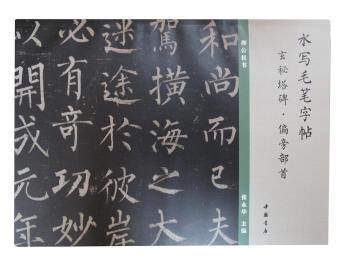 水写毛笔字帖
玄秘塔碑·偏旁部首
中国书店
柳公权书
主编
和尚而已夫
驾横海之大
迷途於彼岸
必有奇功妙
以開成元年